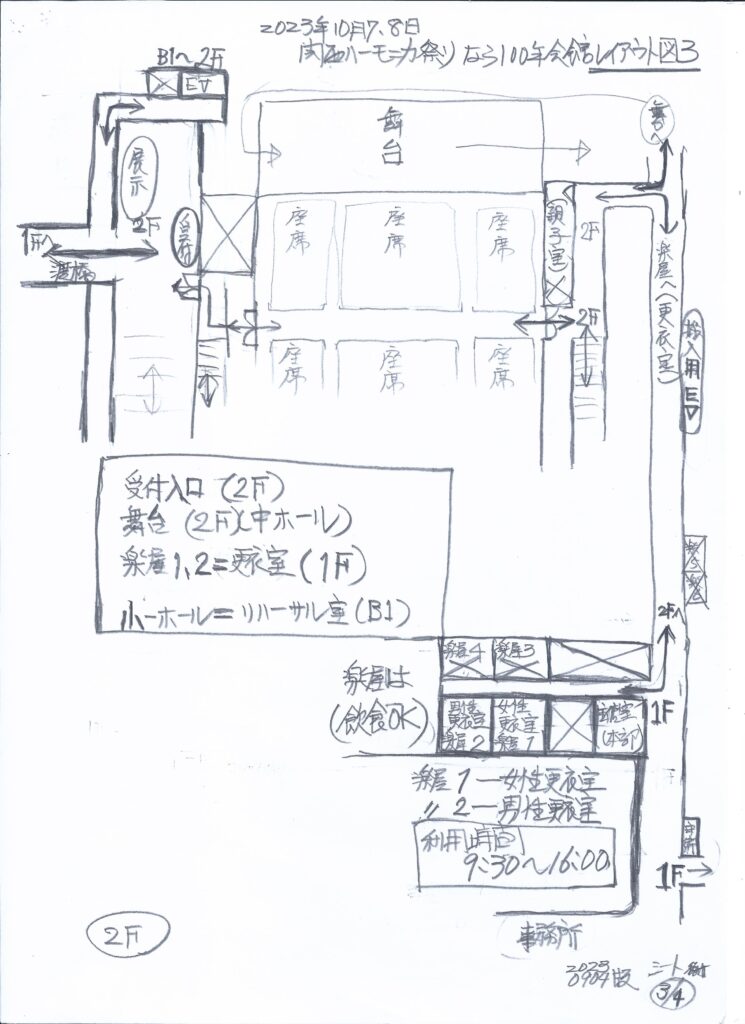 2023年10月7、8日
関西ハーモニカ祭り なら100年会館 レイアウト図3
B1〜2F
EV
舞台
舞台へ
展示
2F
受付
1Fへ
渡橋
座席
座席
座席
親子室
2F
2F
楽屋へ(更衣室)
搬入用EV
座席
座席
座席
受付入口 (2F)
舞台 (2F)(中ホール)
楽屋1、2=更衣室 (1F)
小ーホール=リハーサル室(B1)
2Fへ
楽屋4
楽屋3
楽屋は
(飲食OK)
男性
更衣室
楽屋2
女性
更衣室
楽屋1
(本部)
1F
楽屋1ー女性更衣室
〃2ー男性更衣室
利用時間
9:30〜16:00
1F
事務所
2F
2023
0904版
シート
3/4